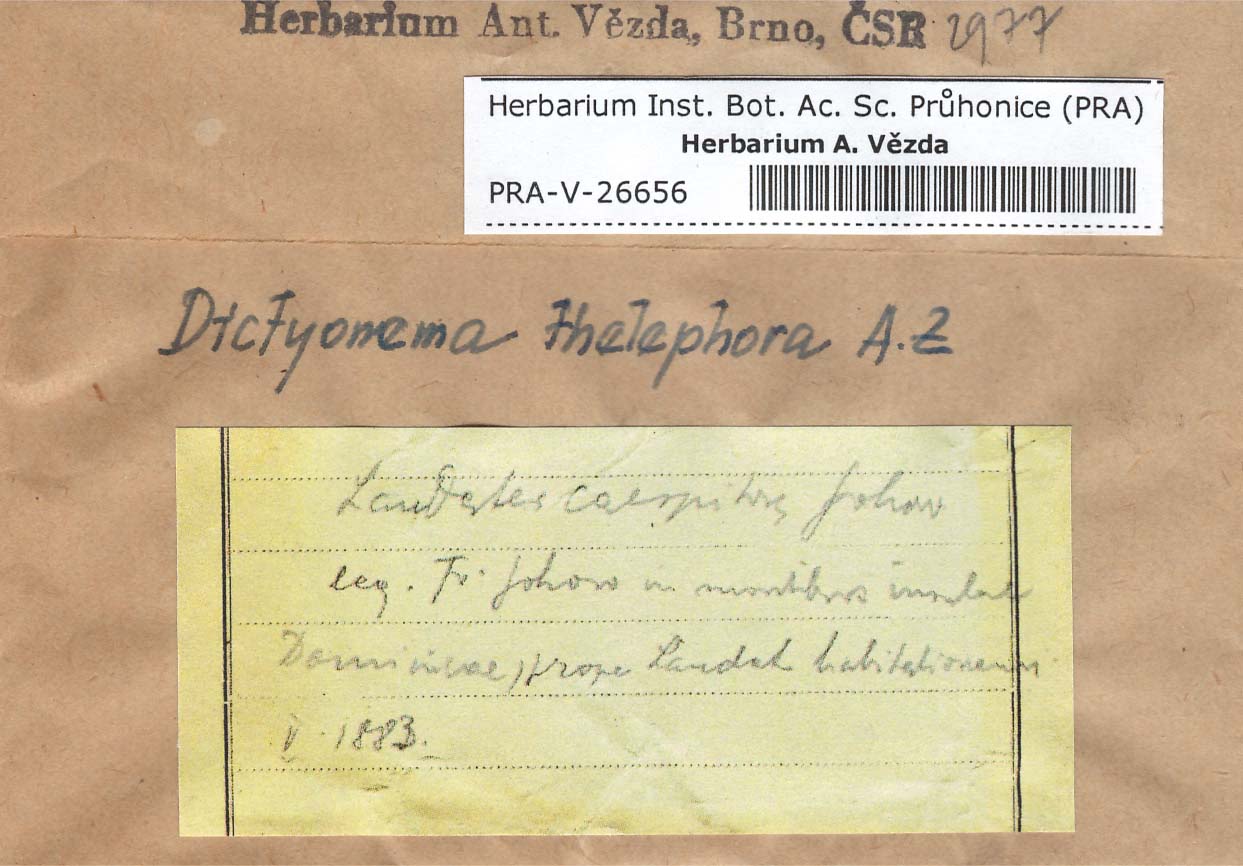 Herbarium Ant. Vězda, Brno, ČSR 2977
Herbarium Inst. Bot. Ac. Sc. Průhonice (PRA)
Herbarium A. Vězda
PRA-V-26656
Dictyonema thelephora A.Z
Laudatea caespitosa Johow
leg. Fr. Johow in montibus insulae
Dominicae, prope Laudat habitationem
V. 1883.